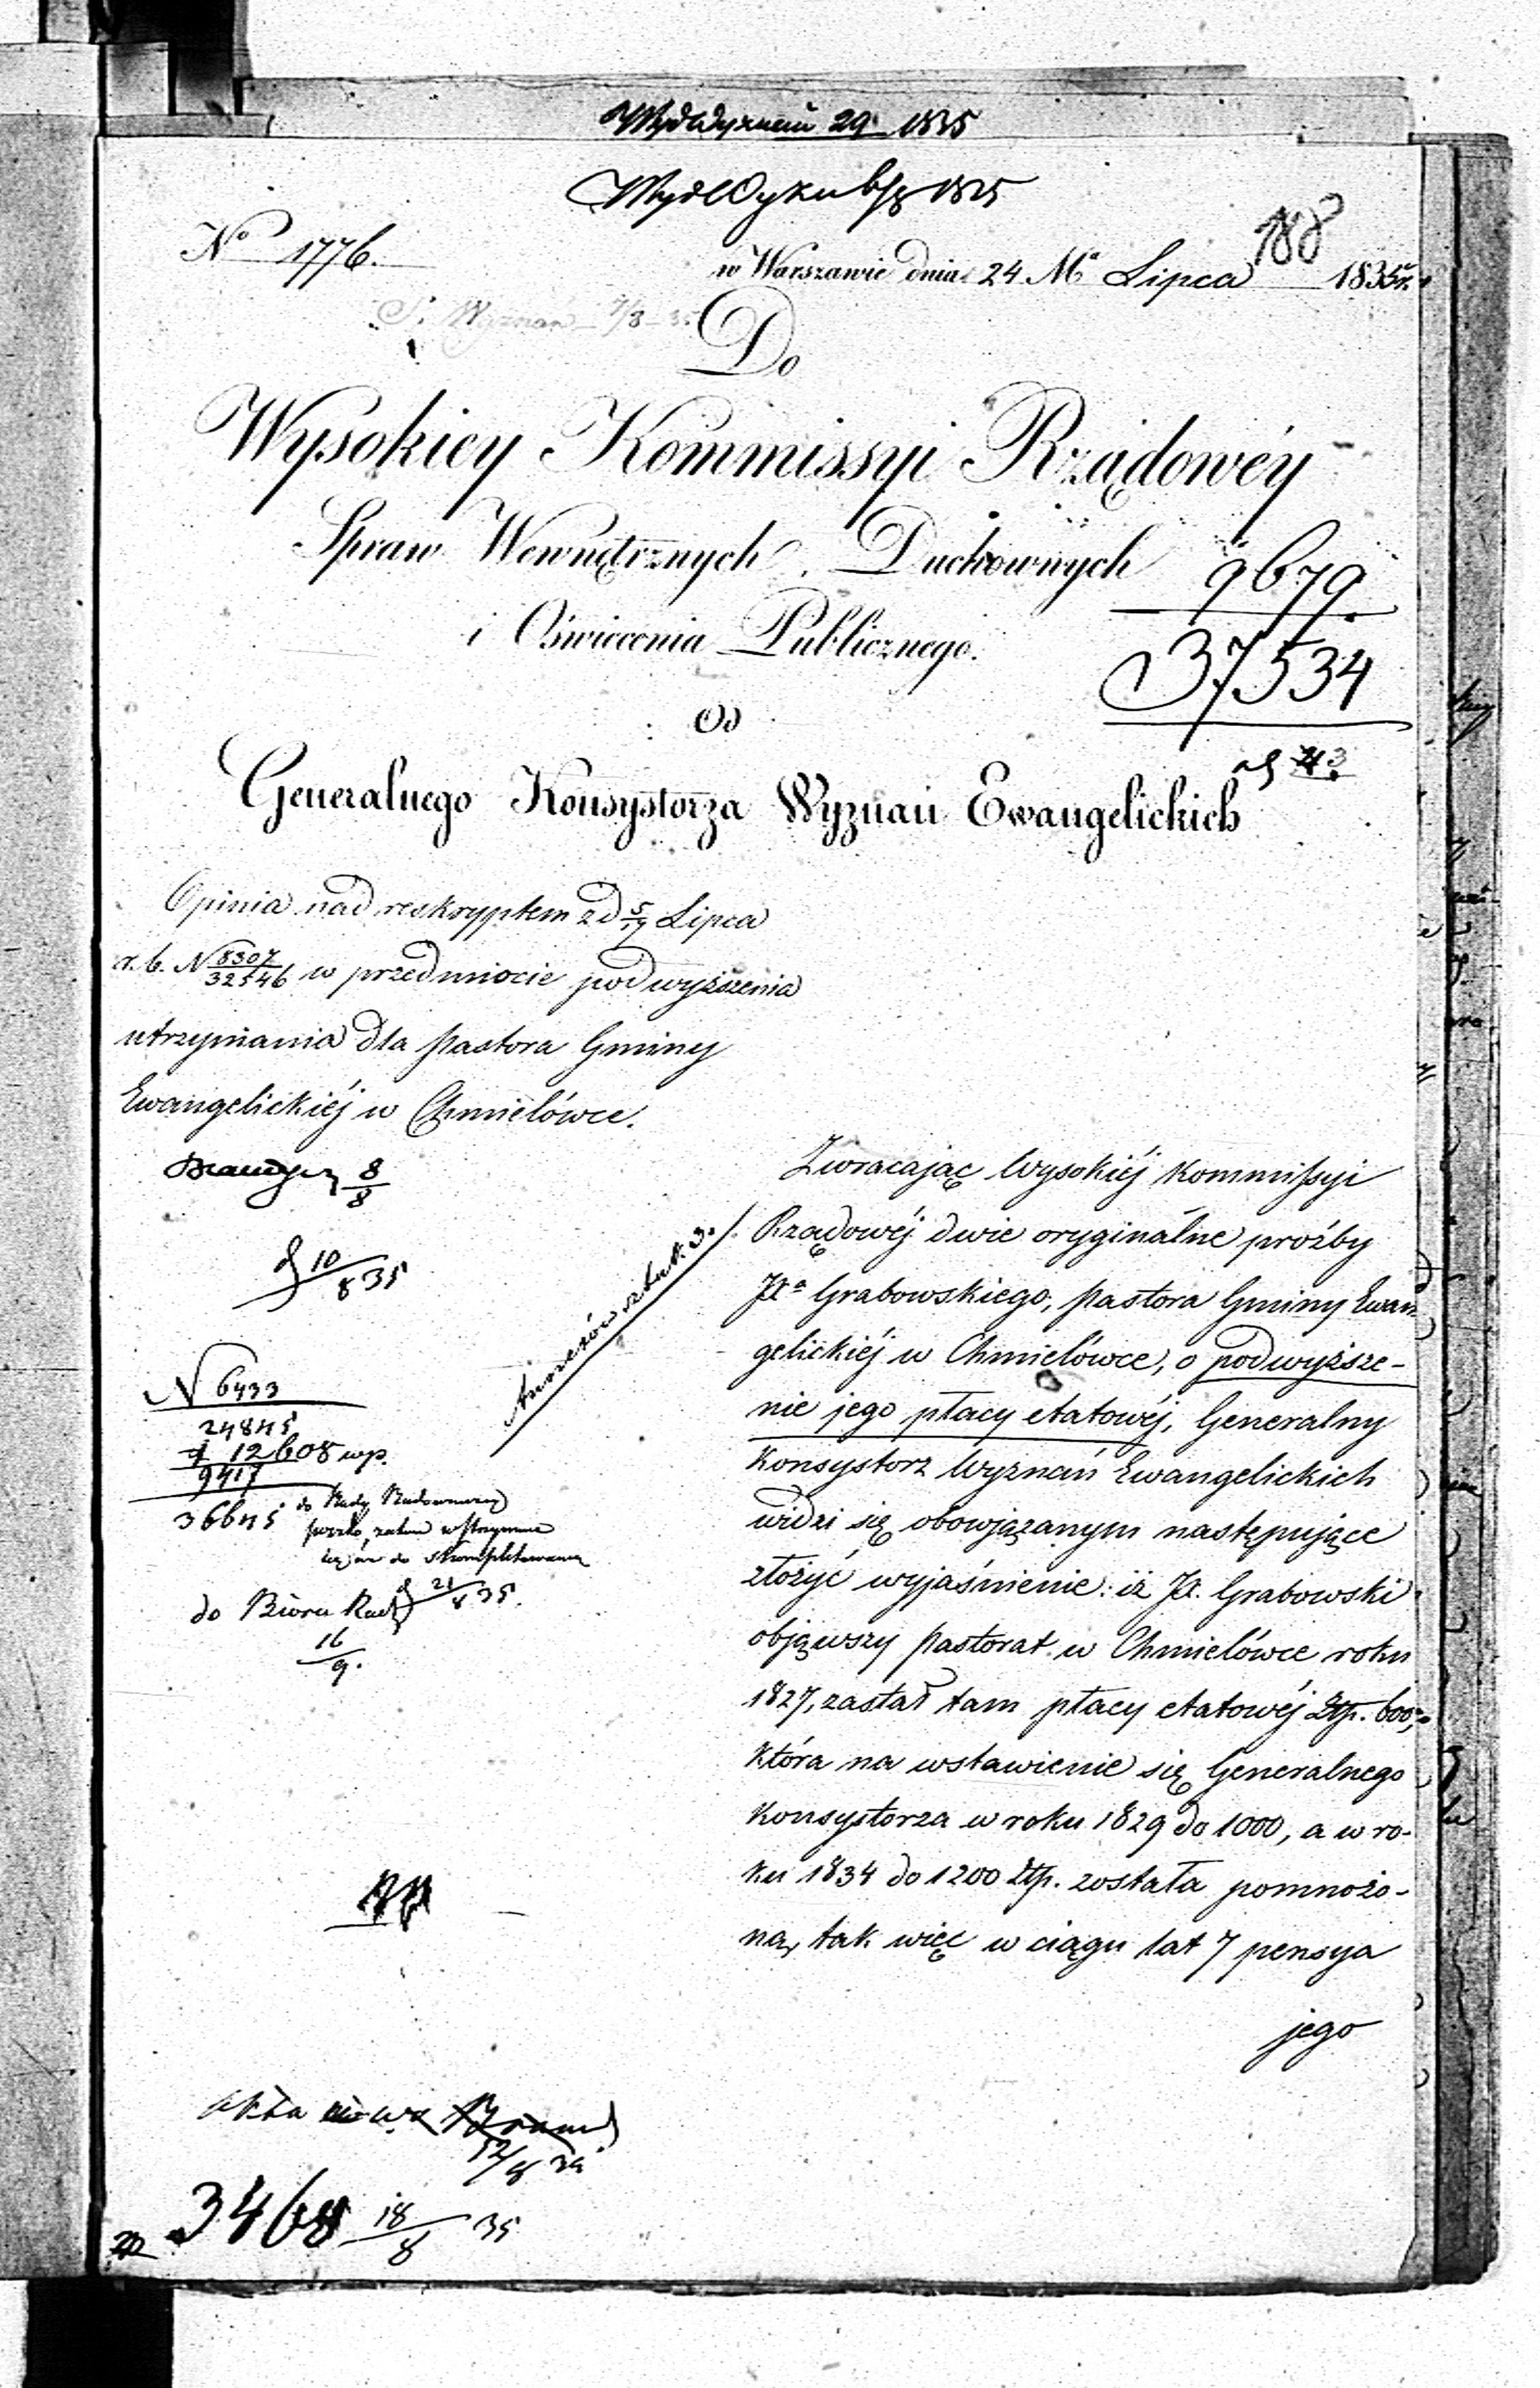 29 1835
No 1776.
188
w Warszawie dnia 24 Ma Lipca 1835 r.
Do
Wysokiey Kommissyi Rządowéy
Spraw Wewnętrznych, Duchownych
9679
i Oświecenia Publicznego.
37534
Od
Generalnego Konsystorza Wyznań Ewangelickich
Opinia nad reskryptem zd 5/17 Lipca
r. b. N 8307/32546 w przedmiocie podwyższenia
utrzymania dla pastora Gminy
Ewangelickiéj w Chmielówce.
8/8
10/8 35
N 6433
24845
12608 wp.
9417
36645 do Rady
do Bióra Rady 21/8 35.
16/9.
Zwracając Wysokiéj Kommissyi
Rządowéj dwie oryginalne prożby
JXa Grabowskiego, pastora Gminy Ewan
gelickiéj w Chmielówce, o podwyższe-
nie jego płacy etatowéj, Generalny
Konsystorz Wyznań Ewangelickich
widzi się obowjązanym następujące
złożyć wyjaśnienie: iż JX. Grabowski
objąwszy pastorat w Chmielówce roku
1827, zastał tam płacy etatowéj Złp. 600,
która na wstawienie się Generalnego
Konsystorza w roku 1829 do 1000, a w ro-
ku 1834 do 1200 Złp. została pomnożo-
na, tak więc w ciągu lat 7 pensya
jego
Akta
3468 18/8 35